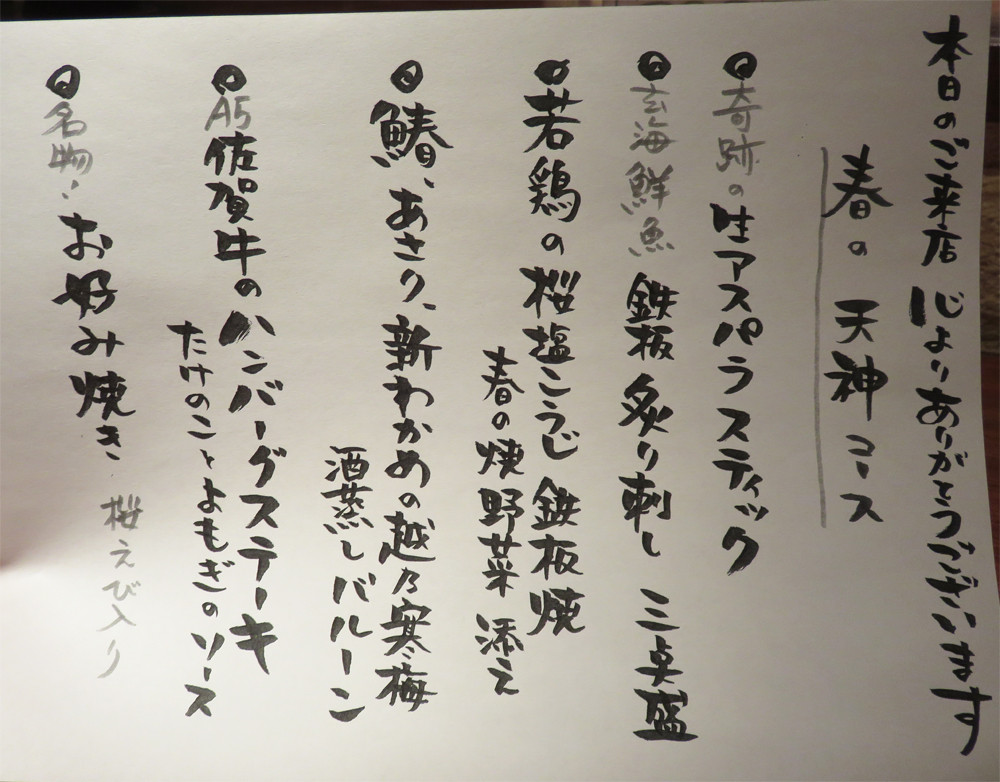 本日のご来店 心よりありがとうございます
春の 天神コース
奇跡の生アスパラスティック
玄海鮮魚 鉄板 炙り刺し 三点盛
若鶏の桜塩こうじ 鉄板焼
春の焼野菜 添え
鰆、あさり、新わかめの越乃寒梅
酒蒸しバルーン
A5佐賀牛のハンバーグステーキ
たけのことよもぎのソース
名物!お好み焼き 桜えび入り